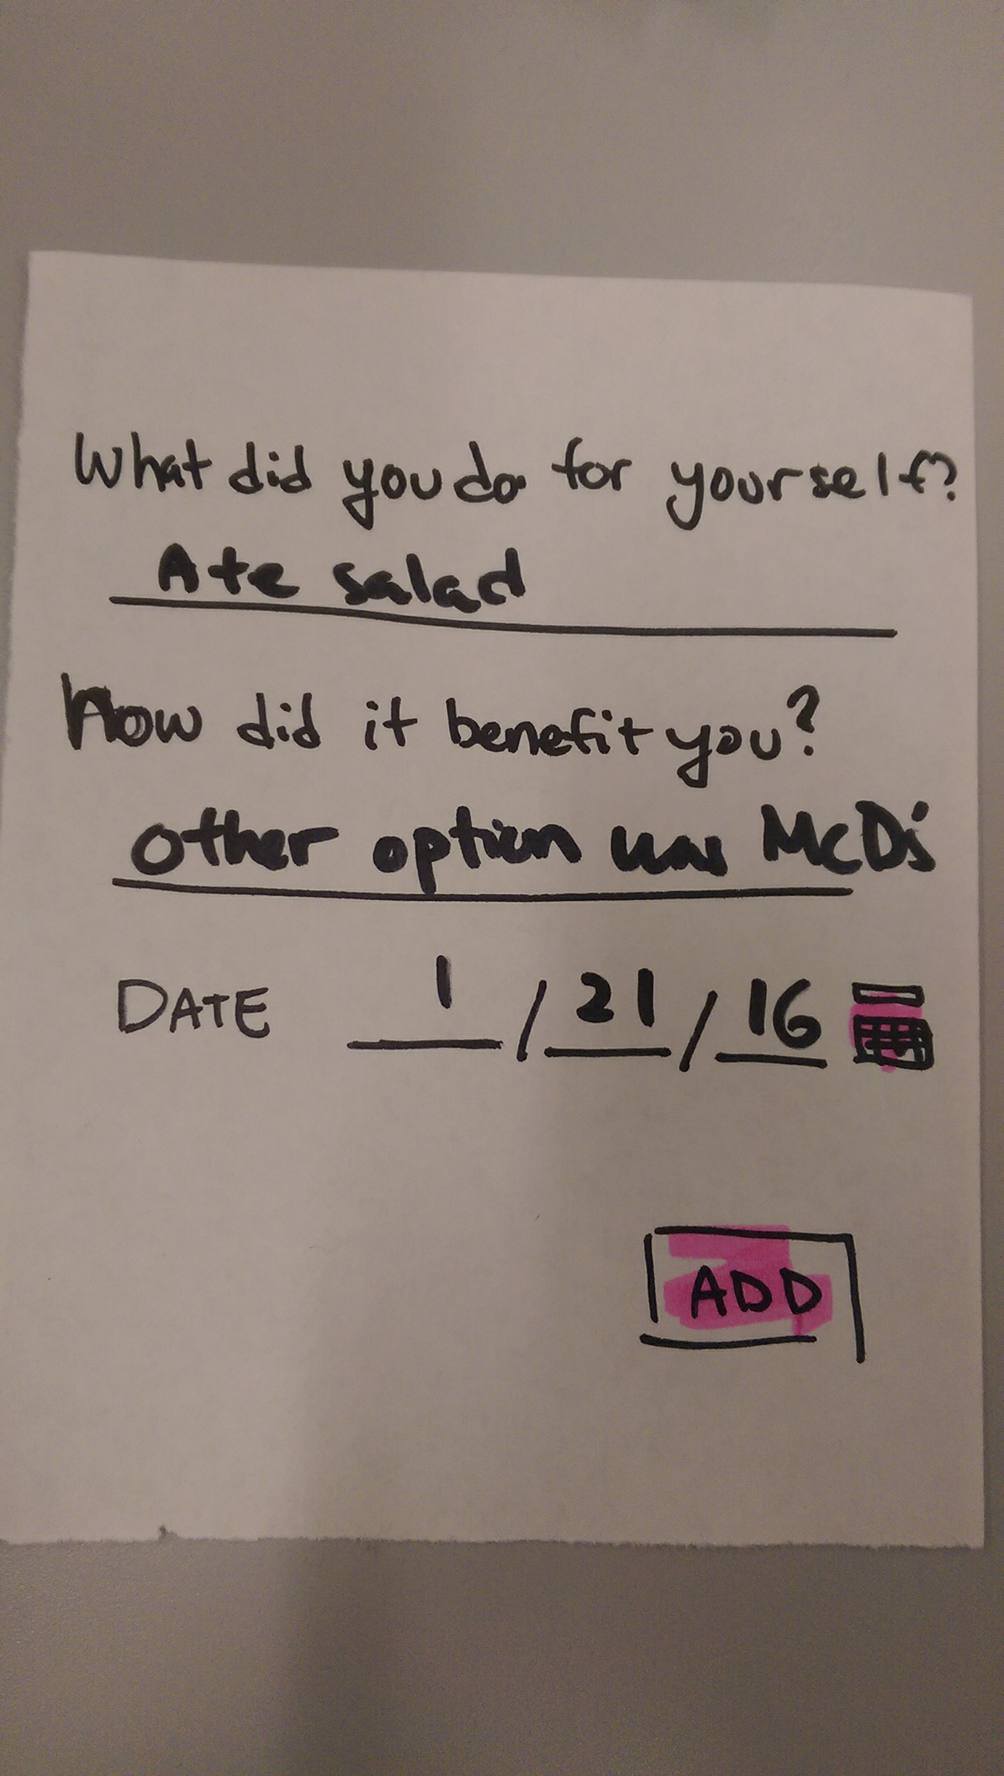 What did you do for yourself?
Ate salad
How did it benefit you?
other option was McD's
DATE 1/21/16
ADD